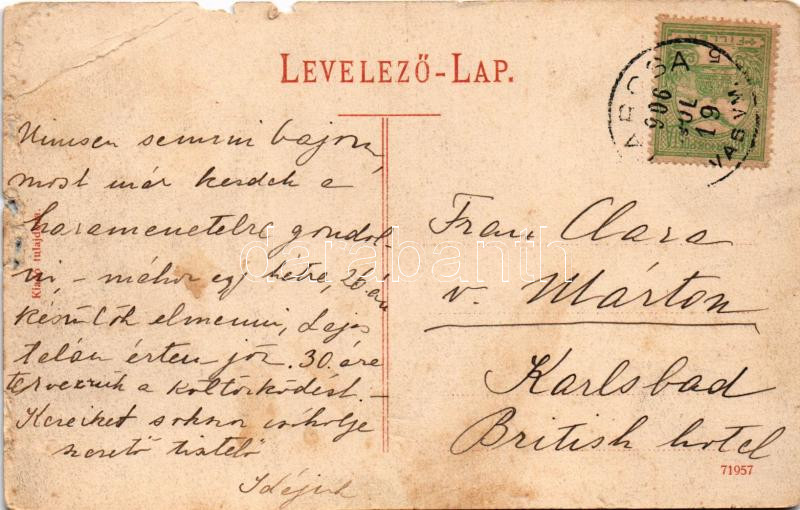 LEVELEZŐ-LAP.
VASVM.
906 JUL 19
5
FILLÉR
Nincsen semmi bajom,
most már kezdek a
hazamenetelre gondol-
ni, – mához egy hétre, 26.án
készülök elmenni, Lajos
talán értem jön. 30.áre
tervezzük a költözködést. –
Kezeiket sokszor csókolja
szerető tisztelő
Kiadó tulajdona.
Frau Clara
v. Márton
Karlsbad
British hotel
71957
darabanth